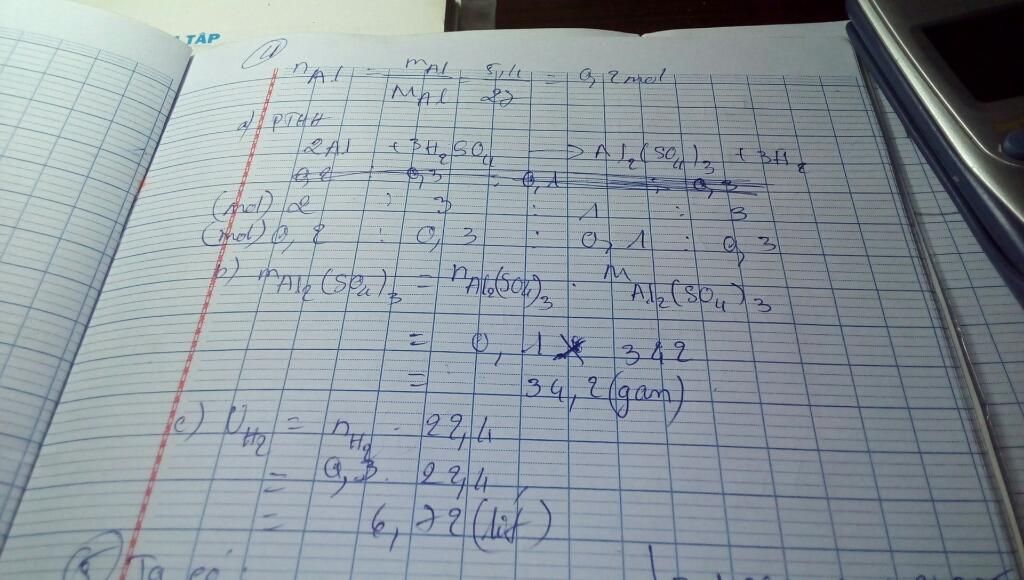 TẬP
4)
nAl = mAl / MAl = 5,4 / 27 = 0,2 mol
a) PTHH
2Al + 3H2SO4 → Al2(SO4)3 + 3H2
0,2 : 0,3 : 0,1 : 0,3
(mol) 2 : 3 : 1 : 3
(mol) 0,2 : 0,3 : 0,1 : 0,3
b) mAl2(SO4)3 = nAl2(SO4)3 . MAl2(SO4)3
= 0,1 x 342
= 34,2 (gam)
c) VH2 = nH2 . 22,4
= 0,3 . 22,4
= 6,72 (lít)
5) Ta có :